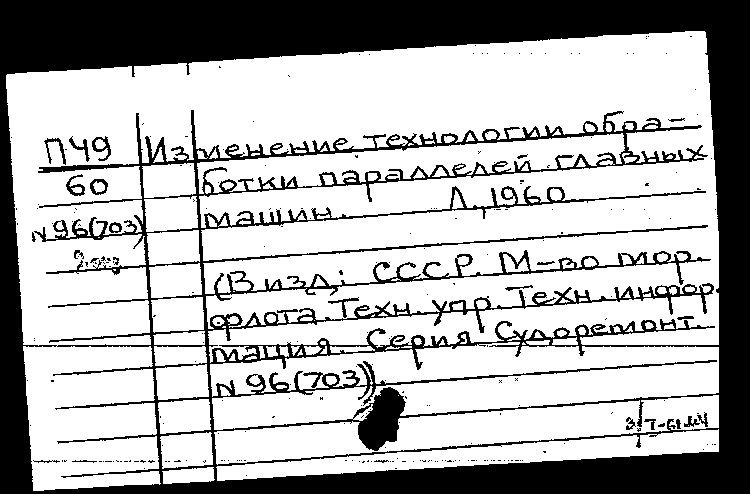 П49
60
N 96(703)
2 экз
Изменение технологии обра-
ботки параллелей главных
машин. Л., 1960
(В изд.: СССР. М-во мор.
флота. Техн. упр. Техн. инфор-
мация. Серия Судоремонт.
N 96(703)).